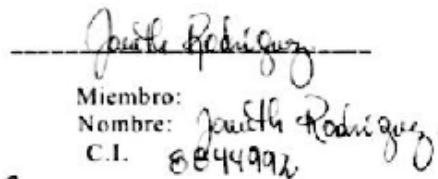 Janeth Rodriguez
Miembro:
Nombre: Janeth Rodriguez
C.I. 8844992